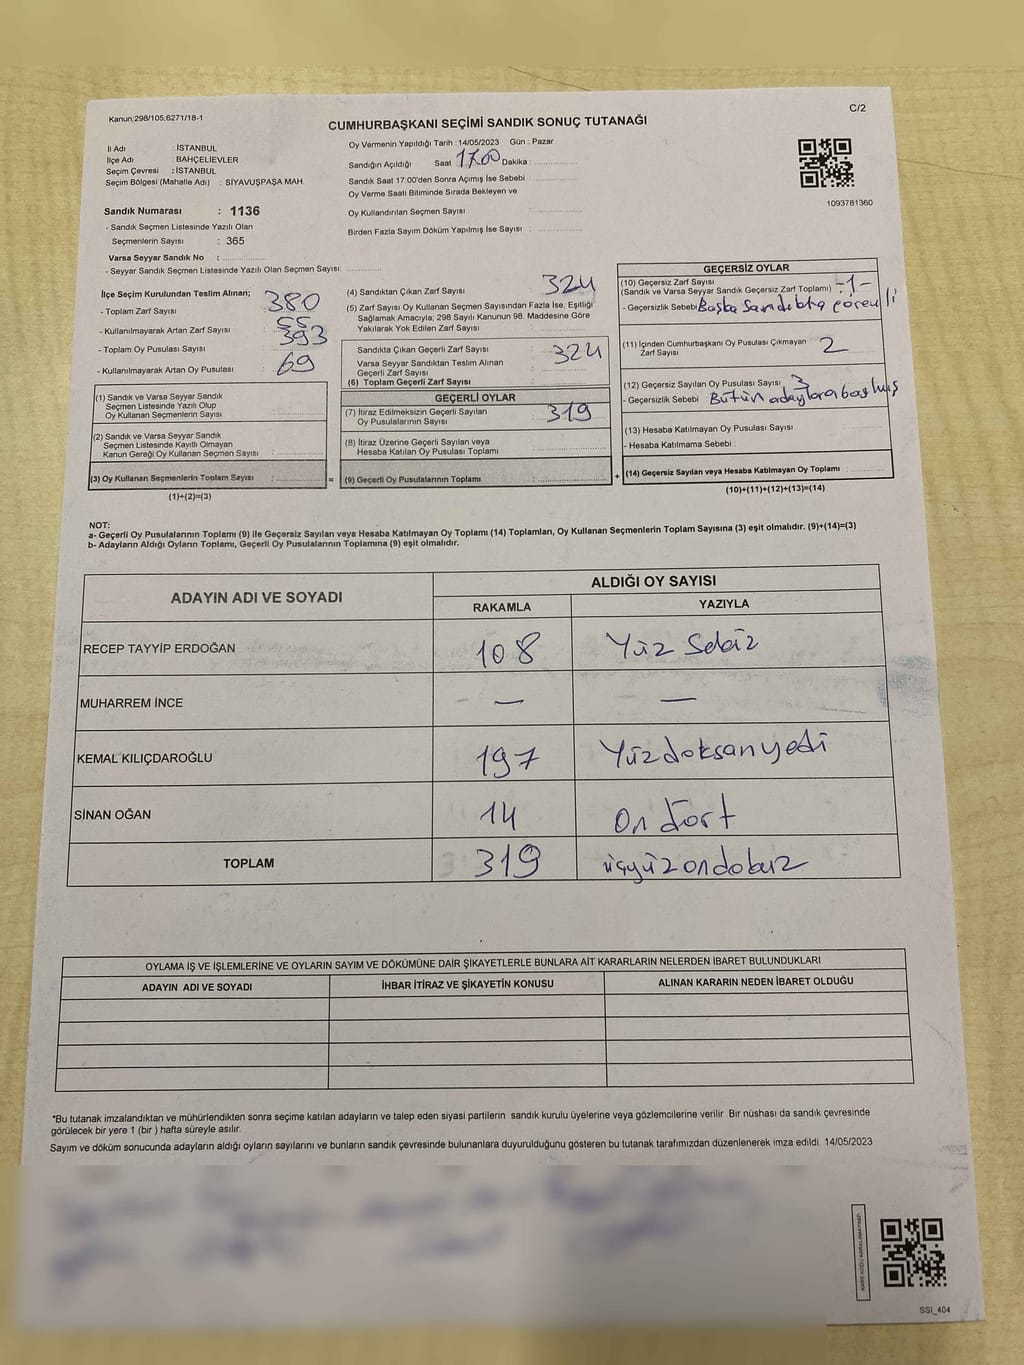 Kanun:298/105;6271/18-1
C/2
CUMHURBAŞKANI SEÇİMİ SANDIK SONUÇ TUTANAĞI
İl Adı : İSTANBUL
İlçe Adı : BAHÇELİEVLER
Seçim Çevresi : İSTANBUL
Seçim Bölgesi (Mahalle Adı) : SİYAVUŞPAŞA MAH.
Sandık Numarası : 1136
- Sandık Seçmen Listesinde Yazılı Olan
Seçmenlerin Sayısı : 365
Varsa Seyyar Sandık No :
- Seyyar Sandık Seçmen Listesinde Yazılı Olan Seçmen Sayısı:
Oy Vermenin Yapıldığı Tarih : 14/05/2023 Gün : Pazar
Sandığın Açıldığı Saat 17.00 Dakika :
Sandık Saat 17:00'den Sonra Açımış İse Sebebi :
Oy Verme Saati Bitiminde Sırada Bekleyen ve
Oy Kullandırılan Seçmen Sayısı :
Birden Fazla Sayım Döküm Yapılmış İse Sayısı :
1093781360
İlçe Seçim Kurulundan Teslim Alınan;
- Toplam Zarf Sayısı : 380
- Kullanılmayarak Artan Zarf Sayısı : 55
- Toplam Oy Pusulası Sayısı : 393
- Kullanılmayarak Artan Oy Pusulası : 69
(1) Sandık ve Varsa Seyyar Sandık
Seçmen Listesinde Yazılı Olup
Oy Kullanan Seçmenlerin Sayısı :
(2) Sandık ve Varsa Seyyar Sandık
Seçmen Listesinde Kayıtlı Olmayan
Kanun Gereği Oy Kullanan Seçmen Sayısı :
(3) Oy Kullanan Seçmenlerin Toplam Sayısı :
(1)+(2)=(3)
=
(4) Sandıktan Çıkan Zarf Sayısı : 324
(5) Zarf Sayısı Oy Kullanan Seçmen Sayısından Fazla İse, Eşitliği
Sağlamak Amacıyla, 298 Sayılı Kanunun 98. Maddesine Göre
Yakılarak Yok Edilen Zarf Sayısı :
Sandıkta Çıkan Geçerli Zarf Sayısı : 324
Varsa Seyyar Sandıktan Teslim Alınan
Geçerli Zarf Sayısı :
(6) Toplam Geçerli Zarf Sayısı :
GEÇERLİ OYLAR
(7) İtiraz Edilmeksizin Geçerli Sayılan
Oy Pusulalarının Sayısı : 319
(8) İtiraz Üzerine Geçerli Sayılan veya
Hesaba Katılan Oy Pusulası Toplamı :
(9) Geçerli Oy Pusulalarının Toplamı :
+
GEÇERSİZ OYLAR
(10) Geçersiz Zarf Sayısı
(Sandık ve Varsa Seyyar Sandık Geçersiz Zarf Toplamı) : -1-
- Geçersizlik Sebebi Başka Sandıkta görevli
(11) İçinden Cumhurbaşkanı Oy Pusulası Çıkmayan
Zarf Sayısı : 2
(12) Geçersiz Sayılan Oy Pusulası Sayısı : 3
- Geçersizlik Sebebi Bütün adaylara basılmış
(13) Hesaba Katılmayan Oy Pusulası Sayısı :
- Hesaba Katılmama Sebebi :
(14) Geçersiz Sayılan veya Hesaba Katılmayan Oy Toplamı :
(10)+(11)+(12)+(13)=(14)
NOT:
a- Geçerli Oy Pusulalarının Toplamı (9) ile Geçersiz Sayılan veya Hesaba Katılmayan Oy Toplamı (14) Toplamları, Oy Kullanan Seçmenlerin Toplam Sayısına (3) eşit olmalıdır. (9)+(14)=(3)
b- Adayların Aldığı Oyların Toplamı, Geçerli Oy Pusulalarının Toplamına (9) eşit olmalıdır.
ADAYIN ADI VE SOYADI
ALDIĞI OY SAYISI
RAKAMLA YAZIYLA
RECEP TAYYİP ERDOĞAN 108 Yüz Sekiz
MUHARREM İNCE — —
KEMAL KILIÇDAROĞLU 197 Yüzdoksanyedi
SİNAN OĞAN 14 On dört
TOPLAM 319 üçyüzondokuz
OYLAMA İŞ VE İŞLEMLERİNE VE OYLARIN SAYIM VE DÖKÜMÜNE DAİR ŞİKAYETLERLE BUNLARA AİT KARARLARIN NELERDEN İBARET BULUNDUKLARI
ADAYIN ADI VE SOYADI İHBAR İTİRAZ VE ŞİKAYETİN KONUSU ALINAN KARARIN NEDEN İBARET OLDUĞU
*Bu tutanak imzalandıktan ve mühürlendikten sonra seçime katılan adayların ve talep eden siyasi partilerin sandık kurulu üyelerine veya gözlemcilerine verilir. Bir nüshası da sandık çevresinde
görülecek bir yere 1 (bir ) hafta süreyle asılır.
Sayım ve döküm sonucunda adayların aldığı oyların sayılarını ve bunların sandık çevresinde bulunanlara duyurulduğunu gösteren bu tutanak tarafımızdan düzenlenerek imza edildi. 14/05/2023
KARE KODU KARALAMAYINIZ!
SSI_404